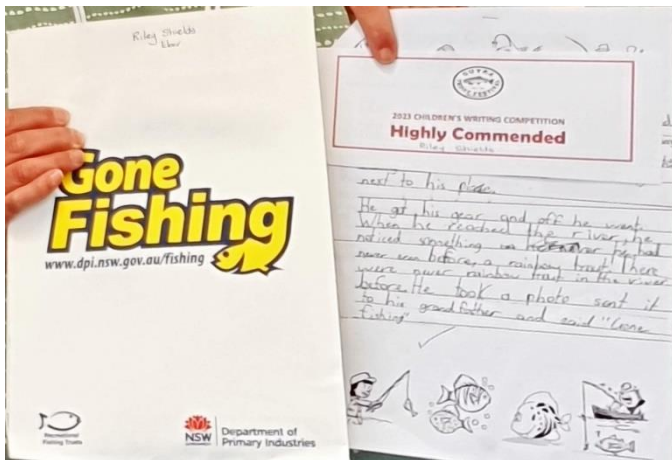 Riley Shields
Ebor
Gone
Fishing
www.dpi.nsw.gov.au/fishing
Recreational
Fishing Trusts
NSW
GOVERNMENT
Department of
Primary Industries
GUYRA
TROUT FESTIVAL
2023 CHILDREN'S WRITING COMPETITION
Highly Commended
Riley Shields
next to his place.
He got his gear and off he went.
When he reached the river, he
noticed something he had
never seen before, a rainbow trout. There
were never rainbow trout in the river
before. He took a photo sent it
to his grandfather and said "Gone
fishing"